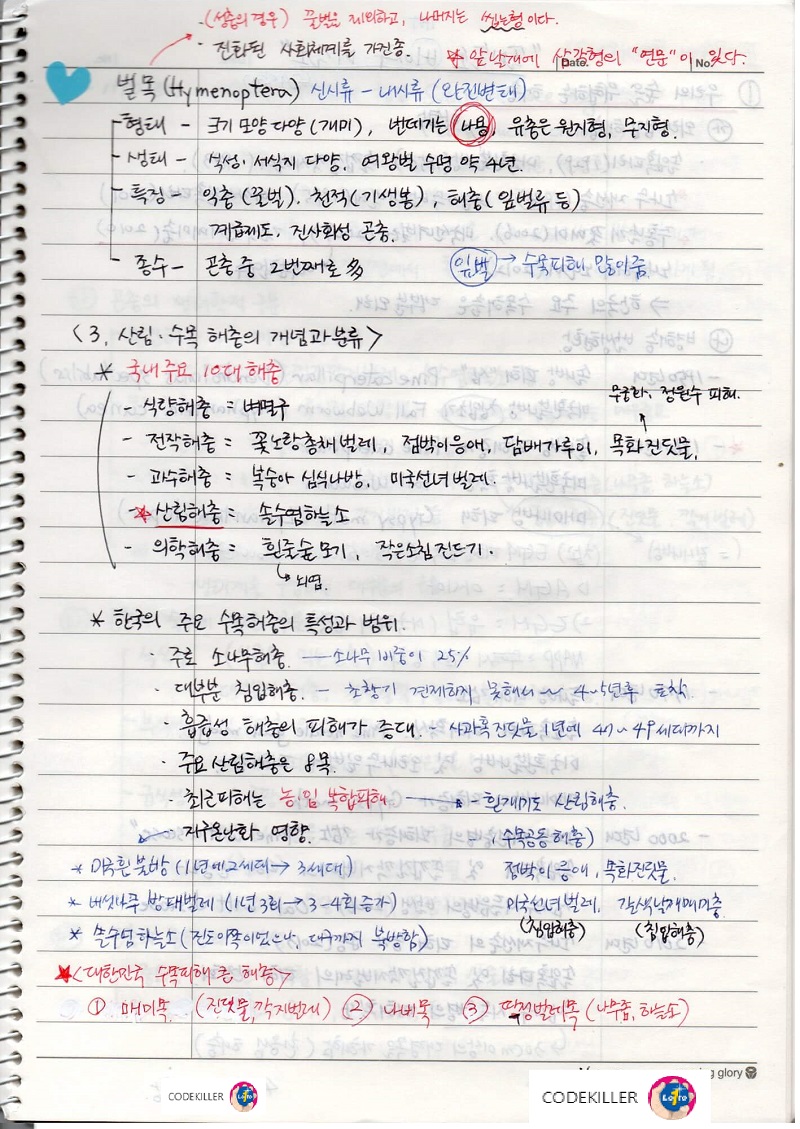 · (성충의 경우) 꿀벌을 제외하고, 나머지는 씹는형이다.
· 진화된 사회체계를 가진종.
* 앞날개에 삼각형의 "연문"이 있다.
Date. No.
벌목 (Hymenoptera) 신시류 - 내시류 (완전변태)
형태 - 크기 모양 다양 (개미), 번데기는 나용, 유충은 원지형, 무지형.
생태 - 식성·서식지 다양. 여왕벌 수명 약 4년.
특징 - 익충 (꿀벌), 천적 (기생봉), 해충 (잎벌류 등)
계층제도, 진사회성 곤충.
종수 - 곤충 중 2번째로 多
잎벌 → 수목피해 많이줌.
<3. 산림·수목 해충의 개념과 분류>
* 국내 주요 10대 해충
무궁화, 정원수 피해.
- 식량해충 = 벼멸구
- 전작해충 = 꽃노랑총채벌레, 점박이응애, 담배가루이, 목화진딧물,
- 과수해충 = 복숭아 심식나방, 미국선녀벌레.
* 산림해충 = 솔수염하늘소
- 의학해충 = 흰줄숲모기, 작은소참진드기.
↳ 뇌염.
* 한국의 주요 수목해충의 특성과 범위.
· 주로 소나무해충. — 소나무 비중이 25%
· 대부분 침입해충. - 초창기 견제하지 못해서 ~ 4~5년후 토착.
· 흡즙성 해충의 피해가 증대. - 사과혹진딧물, 1년에 47~49세대까지
· 주요 산림해충은 8목.
· 최근피해는 농·임 복합피해 - 흰개미도 산림해충.
· 지구온난화 영향.
(수목공동해충)
* 미국흰불나방 (1년에 2세대 → 3세대)
점박이응애, 목화진딧물.
* 버즘나무 방패벌레 (1년 3회 → 3-4회 증가)
미국선녀벌레, 갈색날개매미충.
(침입해충) (침입해충)
* 솔수염하늘소 (전조이쪽이었으나, 대구까지 북방함)
* <대한민국 수목피해 큰 해충>
① 매미목 (진딧물, 깍지벌레) ② 나비목 ③ 딱정벌레목 (나무좀, 하늘소)
g glory
CODEKILLER Lotto
CODEKILLER Lotto